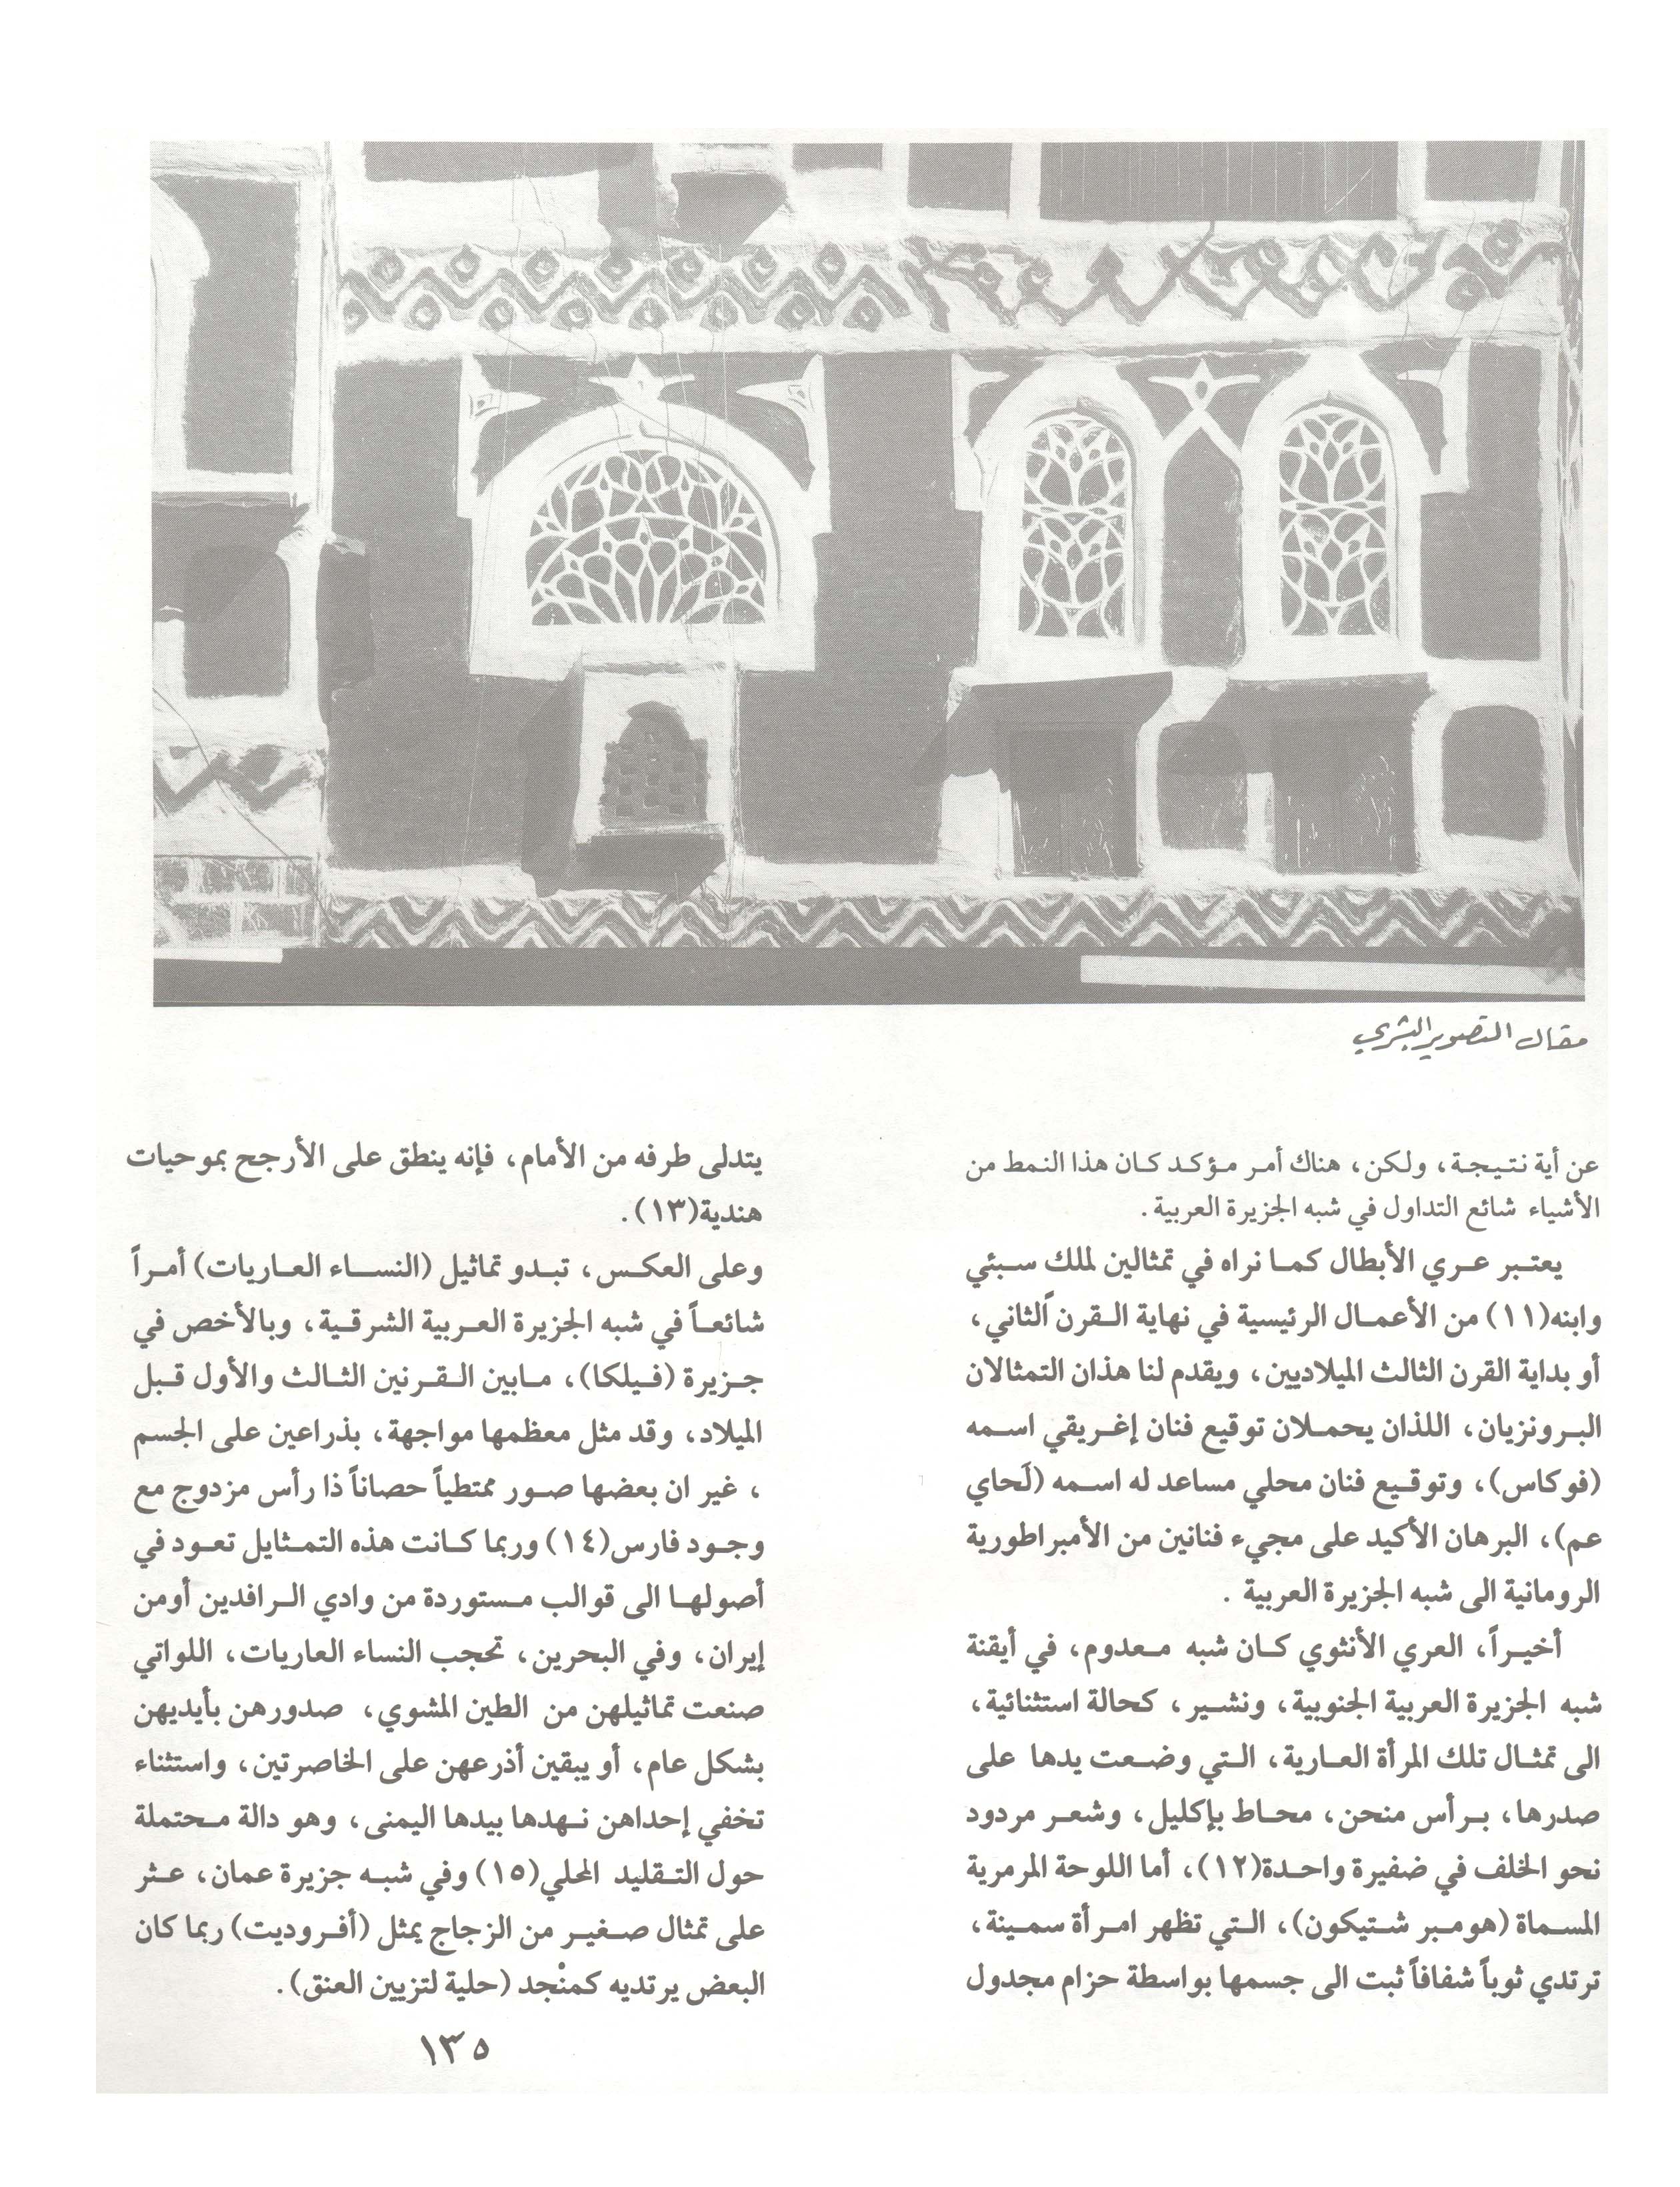 مقال التصوير البشري
عن أية نتيجة، ولكن، هناك أمر مؤكد كان هذا النمط من
الأشياء شائع التداول في شبه الجزيرة العربية.
يعتبر عري الأبطال كما نراه في تمثالين لملك سبئي
وابنه(١١) من الأعمال الرئيسية في نهاية القرن الثاني،
أو بداية القرن الثالث الميلاديين، ويقدم لنا هذان التمثالان
البرونزيان، اللذان يحملان توقيع فنان إغريقي اسمه
(فوكاس)، وتوقيع فنان محلي مساعد له اسمه (لَحاي
عم)، البرهان الأكيد على مجيء فنانين من الأمبراطورية
الرومانية الى شبه الجزيرة العربية .
أخيراً، العري الأنثوي كان شبه معدوم، في أيقنة
شبه الجزيرة العربية الجنوبية، ونشير، كحالة استثنائية،
الى تمثال تلك المرأة العارية، التي وضعت يدها على
صدرها، برأس منحن، محاط بإكليل، وشعر مردود
نحو الخلف في ضفيرة واحدة(١٢)، أما اللوحة المرمرية
المسماة (هومبر شتيكون)، التي تظهر امرأة سمينة،
ترتدي ثوباً شفافاً ثبت الى جسمها بواسطة حزام مجدول
يتدلى طرفه من الأمام، فإنه ينطق على الأرجح بموحيات
هندية(١٣).
وعلى العكس، تبدو تماثيل (النساء العاريات) أمراً
شائعاً في شبه الجزيرة العربية الشرقية، وبالأخص في
جزيرة (فيلكا)، مابين القرنين الثالث والأول قبل
الميلاد، وقد مثل معظمها مواجهة، بذراعين على الجسم
، غير ان بعضها صور ممتطياً حصاناً ذا رأس مزدوج مع
وجود فارس(١٤) وربما كانت هذه التمثايل تعود في
أصولها الى قوالب مستوردة من وادي الرافدين أومن
إيران، وفي البحرين، تحجب النساء العاريات، اللواتي
صنعت تماثيلهن من الطين المشوي، صدورهن بأيديهن
بشكل عام، أو يبقين أذرعهن على الخاصرتين، واستثناء
تخفي إحداهن نهدها بيدها اليمنى، وهو دالة محتملة
حول التقليد المحلي(١٥) وفي شبه جزيرة عمان، عثر
على تمثال صغير من الزجاج يمثل (أفروديت) ربما كان
البعض يرتديه كمنْجد (حلية لتزيين العنق).
١٣٥